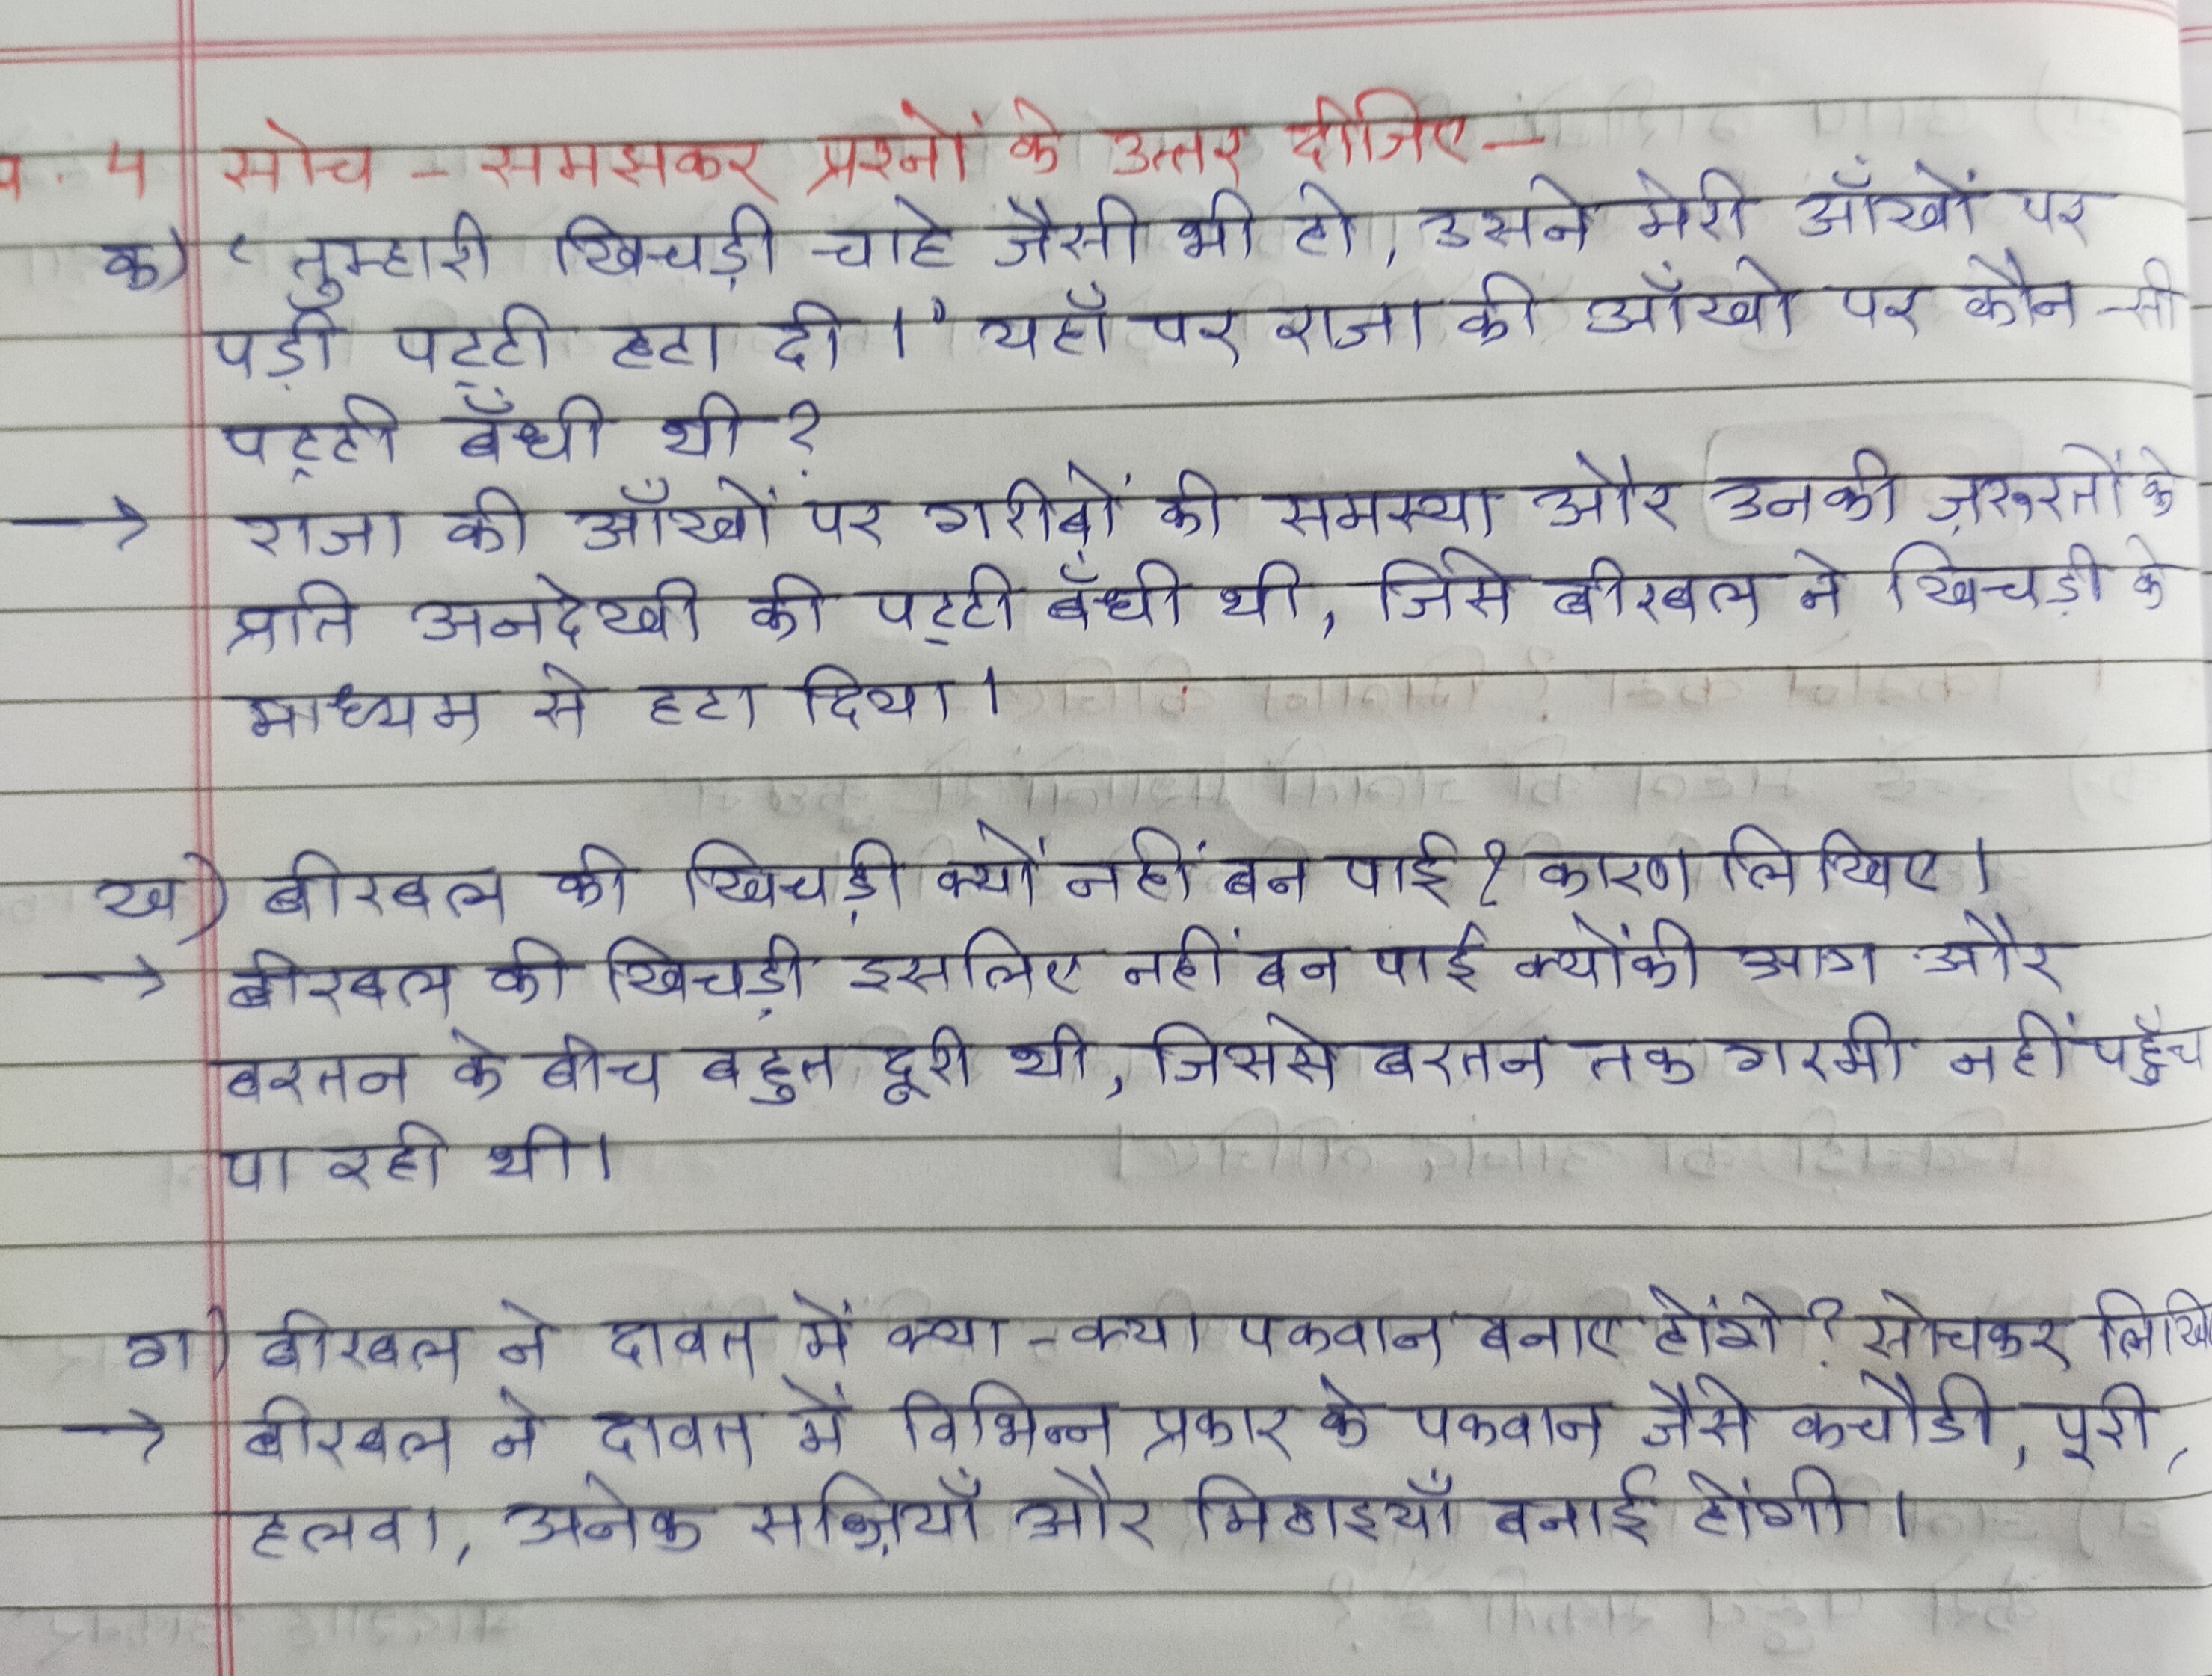 4 सोच - समझकर प्रश्नों के उत्तर दीजिए -
क) ' तुम्हारी खिचड़ी चाहे जैसी भी हो, उसने मेरी आँखों पर
पड़ी पट्टी हटा दी ।" यहाँ पर राजा की आँखो पर कौन -सी
पट्टी बँधी थी ?
→ राजा की आँखों पर गरीबों की समस्या और उनकी ज़रूरतों के
प्रति अनदेखी की पट्टी बँधी थी, जिसे बीरबल ने खिचड़ी के
माध्यम से हटा दिया ।
ख) बीरबल की खिचड़ी क्यों नहीं बन पाई ? कारण लिखिए ।
→ बीरबल की खिचड़ी इसलिए नहीं बन पाई क्योंकी आग और
बरतन के बीच बहुत दूरी थी, जिससे बरतन तक गरमी नहीं पहुँच
पा रही थी।
ग) बीरबल ने दावत में क्या - क्या पकवान बनाए होंगे ? सोचकर
→ बीरबल ने दावत में विभिन्न प्रकार के पकवान जैसे कचौडी, पूरी,
हलवा, अनेक सब्ज़ियाँ और मिठाइयाँ बनाई होंगी ।